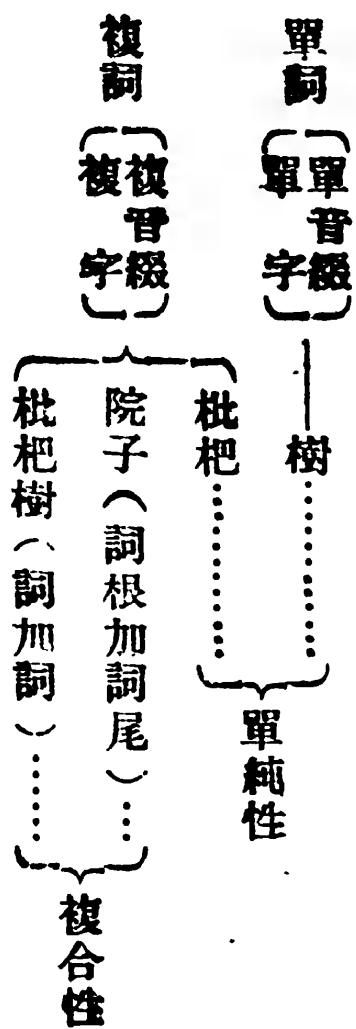 單詞
單音綴
單字
樹……
單純性
複詞
複音綴
複字
枇杷……
院子（詞根加詞尾）…
枇杷樹（詞加詞）……
複合性